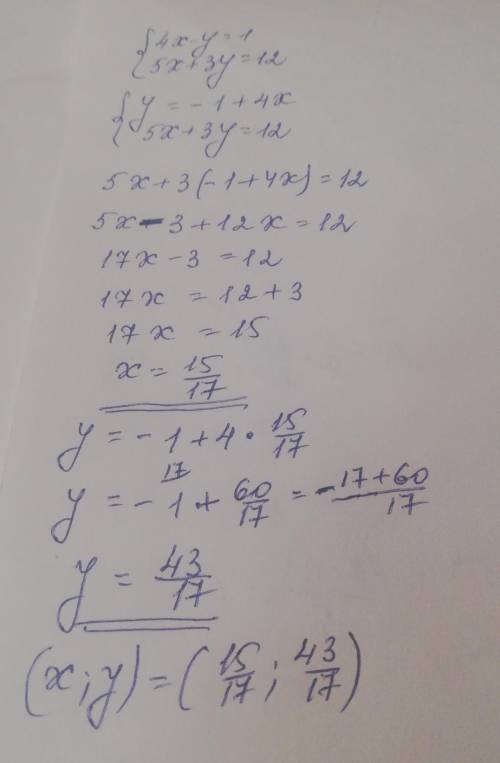 {4x-y=1
5x+3y=12
{y=-1+4x
5x+3y=12
5x+3(-1+4x)=12
5x-3+12x=12
17x-3=12
17x=12+3
17x=15
x=15/17
y=-1+4·15/17
17
y=-1+60/17=-17+60/17
y=43/17
(x;y)=(15/17;43/17)